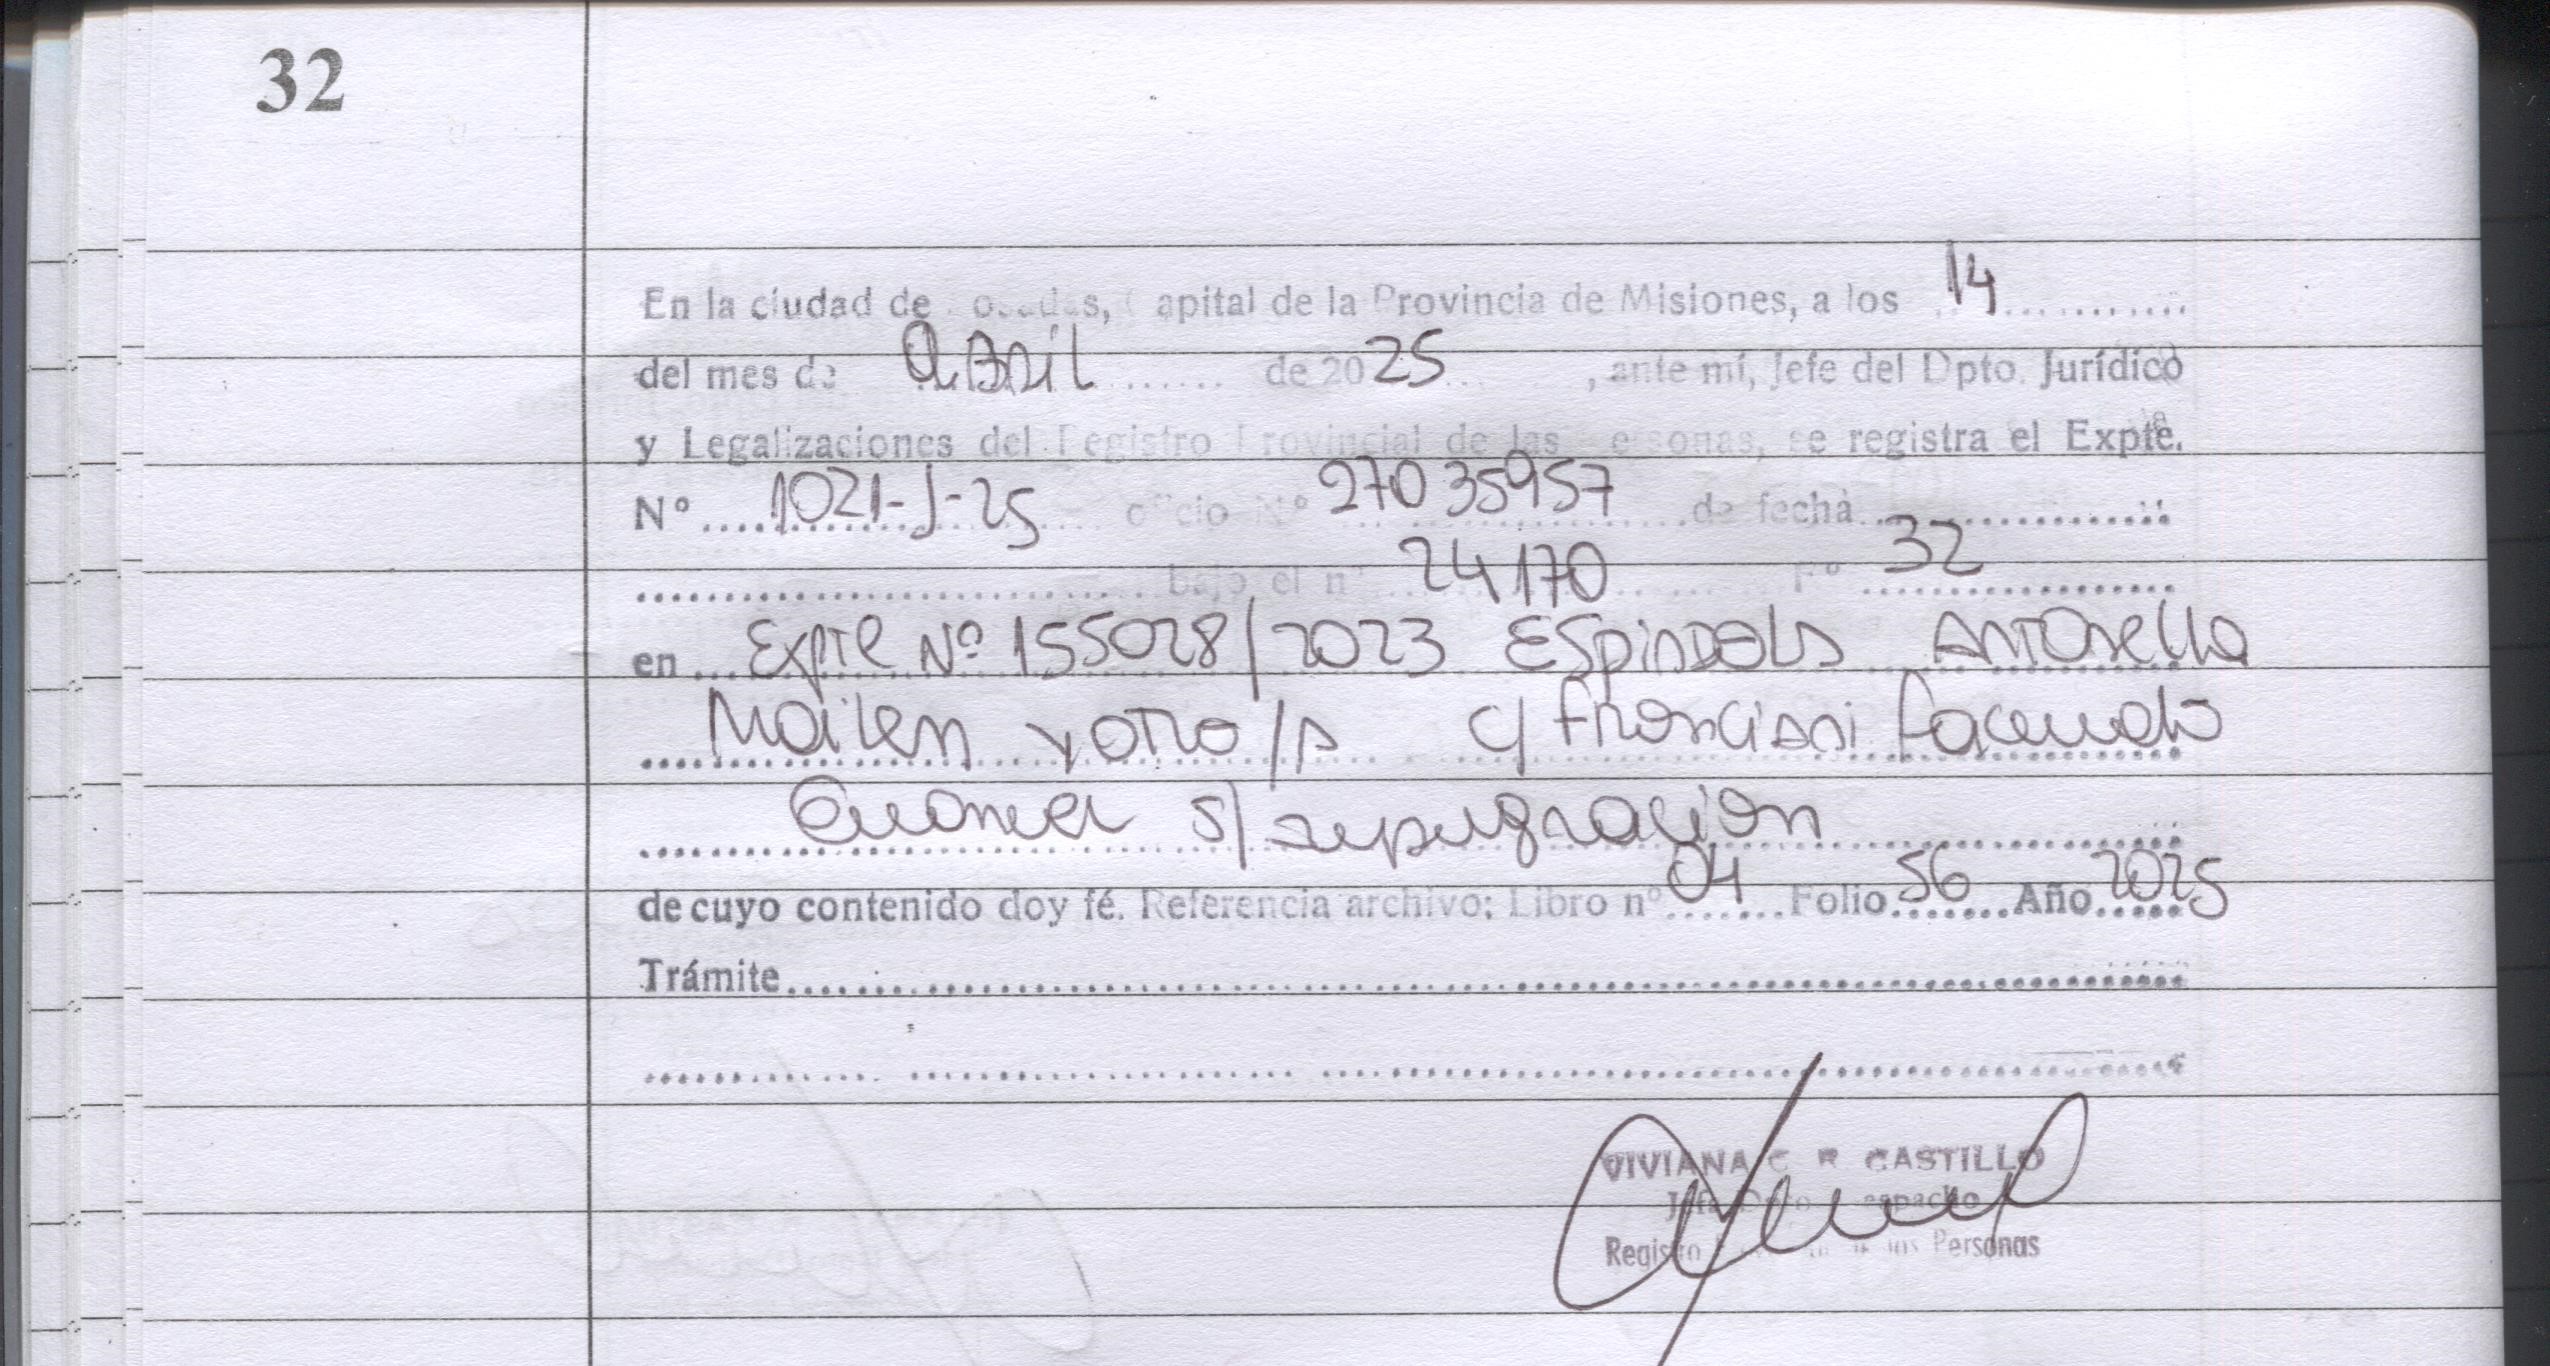 32
En la ciudad de Posadas, Capital de la Provincia de Misiones, a los 14
del mes de Abril de 2025, ante mí, Jefe del Dpto. Jurídico
y Legalizaciones del Registro Provincial de las Personas, se registra el Expte.
Nº 1021-J-25 oficio Nº 27035957 de fecha
bajo el nº 24170 Fº 32
en Expte Nº 155028/2023 Espindola Antonella
Mailen y otro/a c/ Facundo
s/
de cuyo contenido doy fé. Referencia archivo: Libro nº 04 Folio 56 Año 2025
Trámite
VIVIANA C. R. CASTILLO
Jefe Dpto. Despacho
Registro Provincial de las Personas